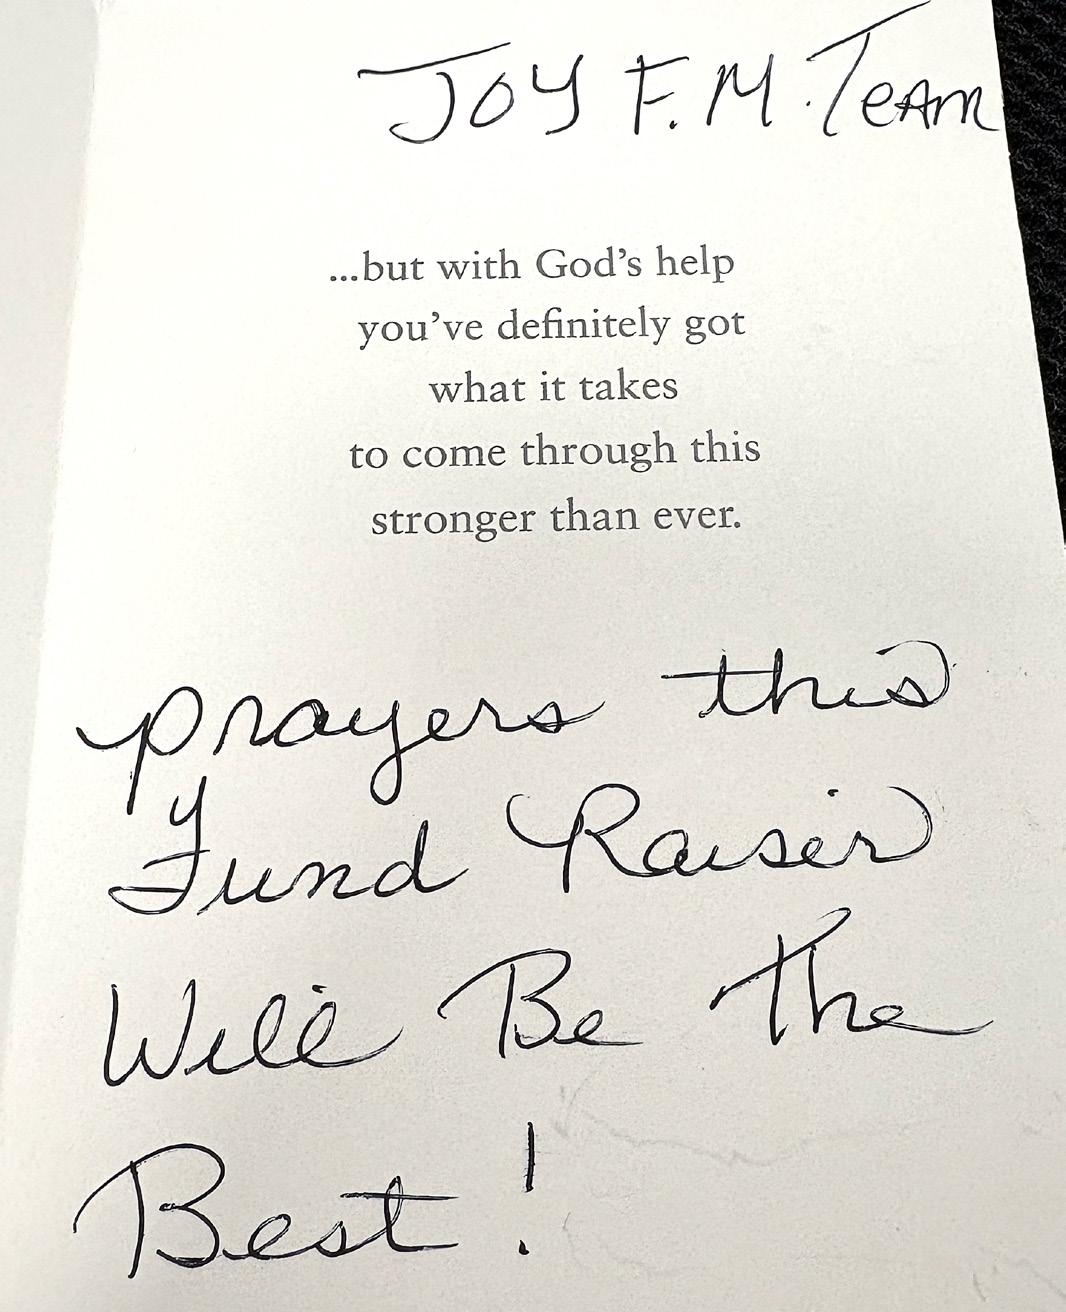 JOY F.M. TeAm
...but with God's help
you've definitely got
what it takes
to come through this
stronger than ever.
prayers this
Fund Raiser
Will Be The
Best!